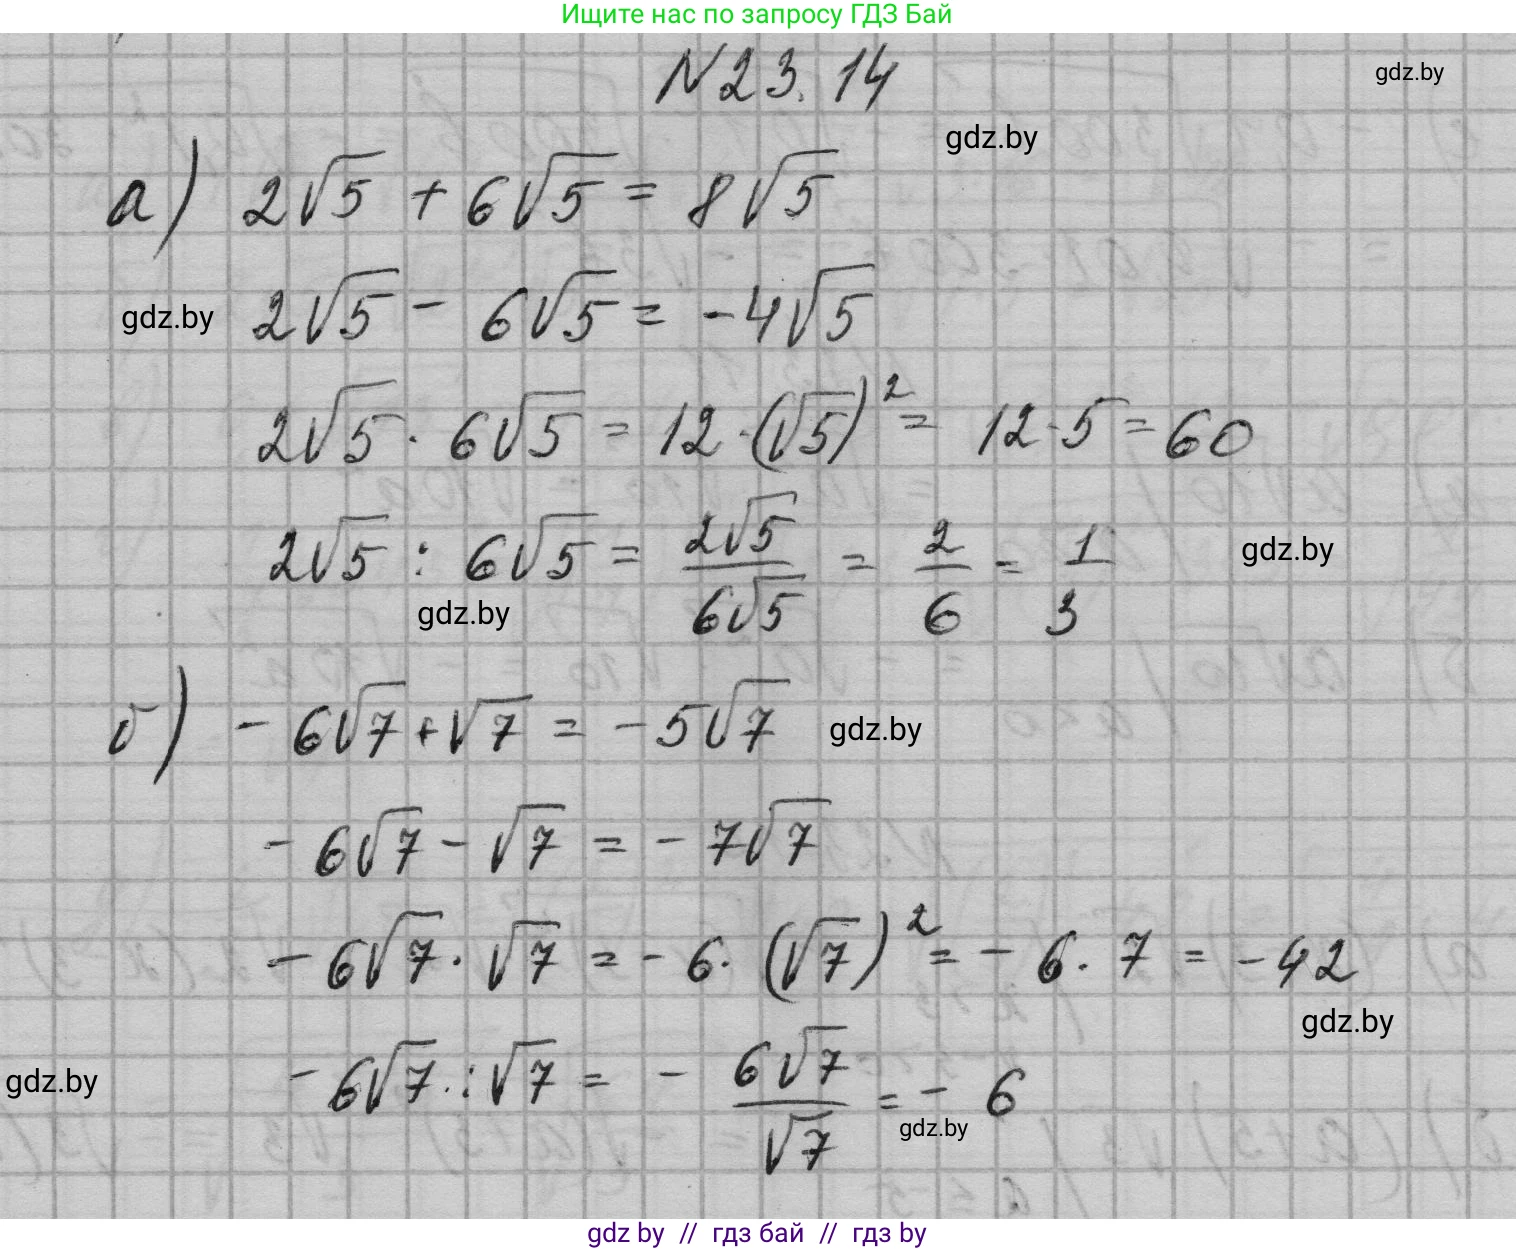 Ищите нас по запросу ГДЗ Бай
N 23.14
gdz.by
gdz.by
а) 2√5 + 6√5 = 8√5
gdz.by
2√5 - 6√5 = -4√5
2√5 · 6√5 = 12 · (√5)² = 12 · 5 = 60
2√5 : 6√5 = 2√5/6√5 = 2/6 = 1/3
gdz.by
gdz.by
б) - 6√7 + √7 = - 5√7
gdz.by
- 6√7 - √7 = - 7√7
- 6√7 · √7 = - 6 · (√7)² = - 6 · 7 = - 42
gdz.by
- 6√7 : √7 = - 6√7/√7 = - 6
gdz.by
gdz.by
gdz by // гдз бай // гдз by